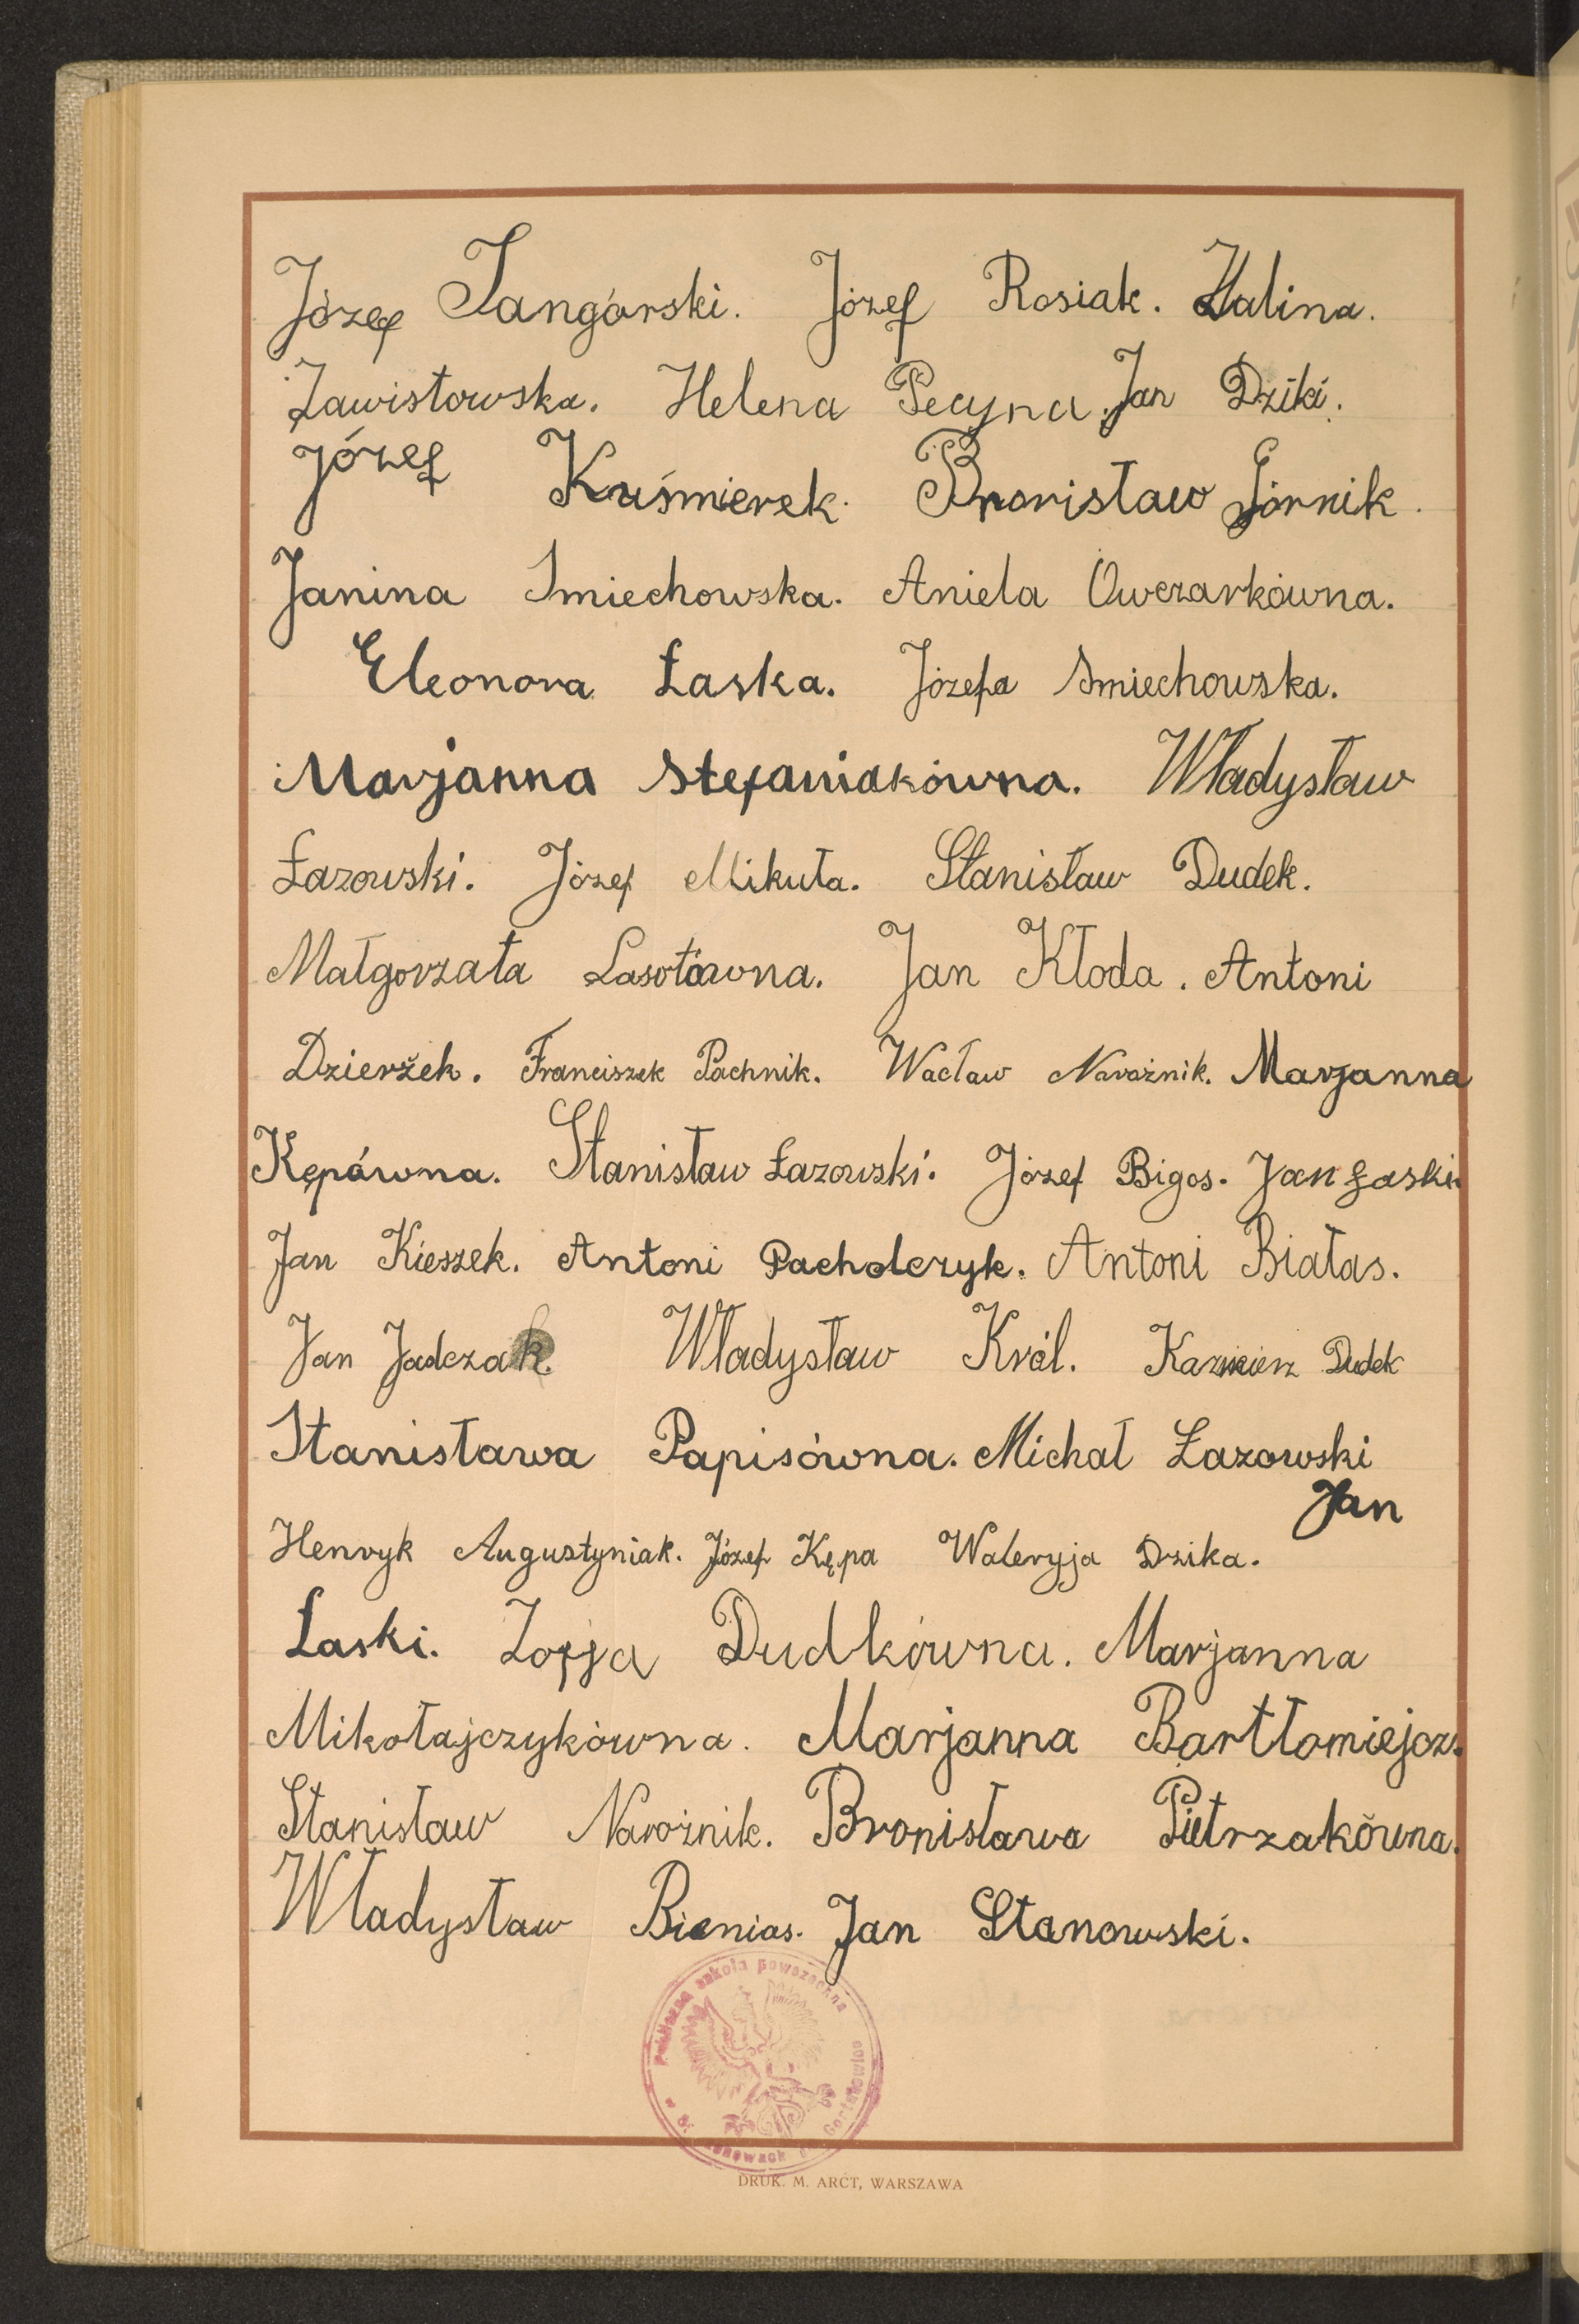 Józef Tangórski. Józef Rosiak. Halina.
Zawistowska. Helena Pecyna. Jan Dziki.
Józef Kuśmierek. Bronisław Górnik.
Janina Smiechowska. Aniela Owczarkówna.
Eleonora Łaska. Józefa Smiechowska.
Marjanna Stefaniakówna. Władysław
Łazowski. Józef Mikuła. Stanisław Dudek.
Małgorzata Lasotówna. Jan Kłoda. Antoni
Dzierżek. Franciszek Pachnik. Wacław Narożnik. Marjanna
Kępówna. Stanisław Łazowski. Józef Bigos. Jan Łaski.
Jan Kieszek. Antoni Pacholczyk. Antoni Białas.
Jan Jadczak. Władysław Król. Kazimierz Dudek
Stanisława Papisówna. Michał Łazowski
Jan
Henryk Augustyniak. Józef Kępa Waleryja Dzika.
Łaski. Zofja Dudkówna. Marjanna
Mikołajczykówna. Marjanna Bartłomiejcz.
Stanisław Narożnik. Bronisława Pietrzakówna.
Władysław Bienias. Jan Stanowski.
publiczna szkoła powszechna
DRUK. M. ARCT, WARSZAWA